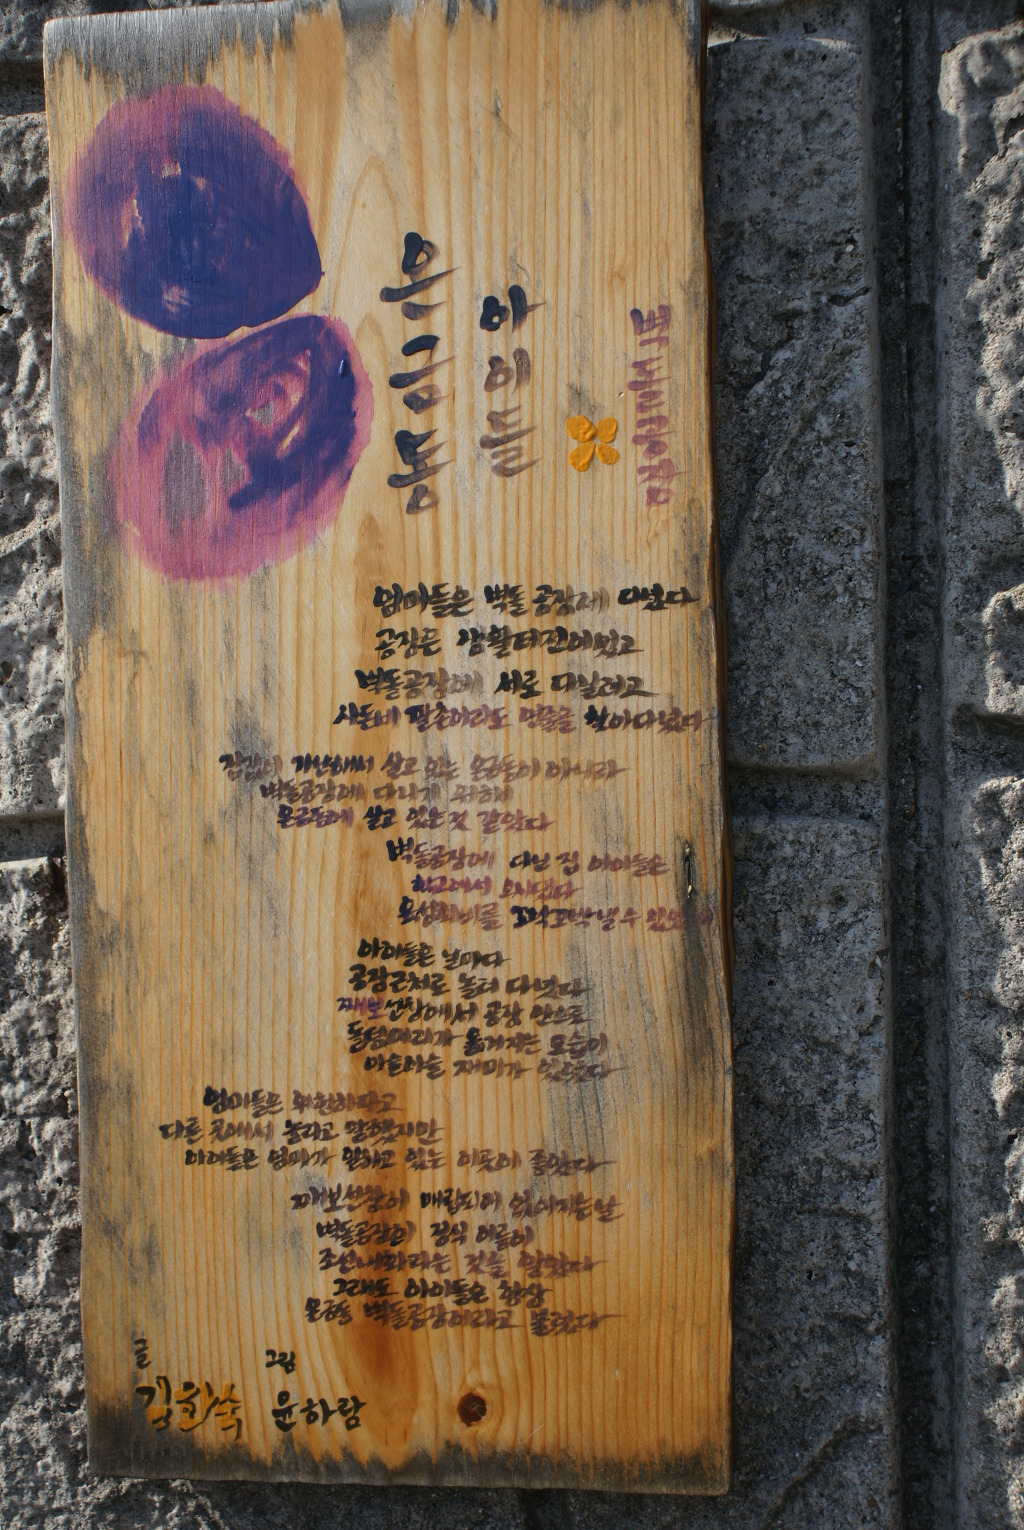 온금동
아이들
벽돌공장
엄마들은 벽돌 공장에 다녔다
공장은 생활터전이었고
벽돌공장에 서로 다닐려고
사돈네 팔촌까리도 연줄을 찾아다녔다
가난해서 살고 있는 온금동이 아니라
벽돌공장에 다니기 위해
온금동에 살고 있는것 같았다
벽돌공장에 다닌 집 아이들은
학교에서 으시댔다
육성회비를 꼬박꼬박 낼 수 있었
아이들은 날마다
공장근처로 놀러 다녔다
째보선창에서 공장 안으로
돌덩어리가 옮겨지는 모습이
아슬아슬 재미가 있었다
엄마들은 위험하다고
다른 곳에서 놀라고 말했지만
아이들은 엄마가 일하고 있는 이곳이 좋았다
째보선창이 매립되어 없어지는날
벽돌공장이 정식 이름이
조선내화라는 것을 알았다
그래도 아이들은 항상
온금동 벽돌공장이라고 불렀다
글
김화숙
그림
윤하람